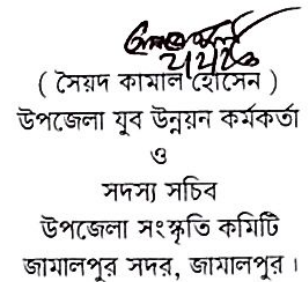 ( সৈয়দ কামাল হোসেন )
উপজেলা যুব উন্নয়ন কর্মকর্তা
ও
সদস্য সচিব
উপজেলা সংস্কৃতি কমিটি
জামালপুর সদর, জামালপুর ।